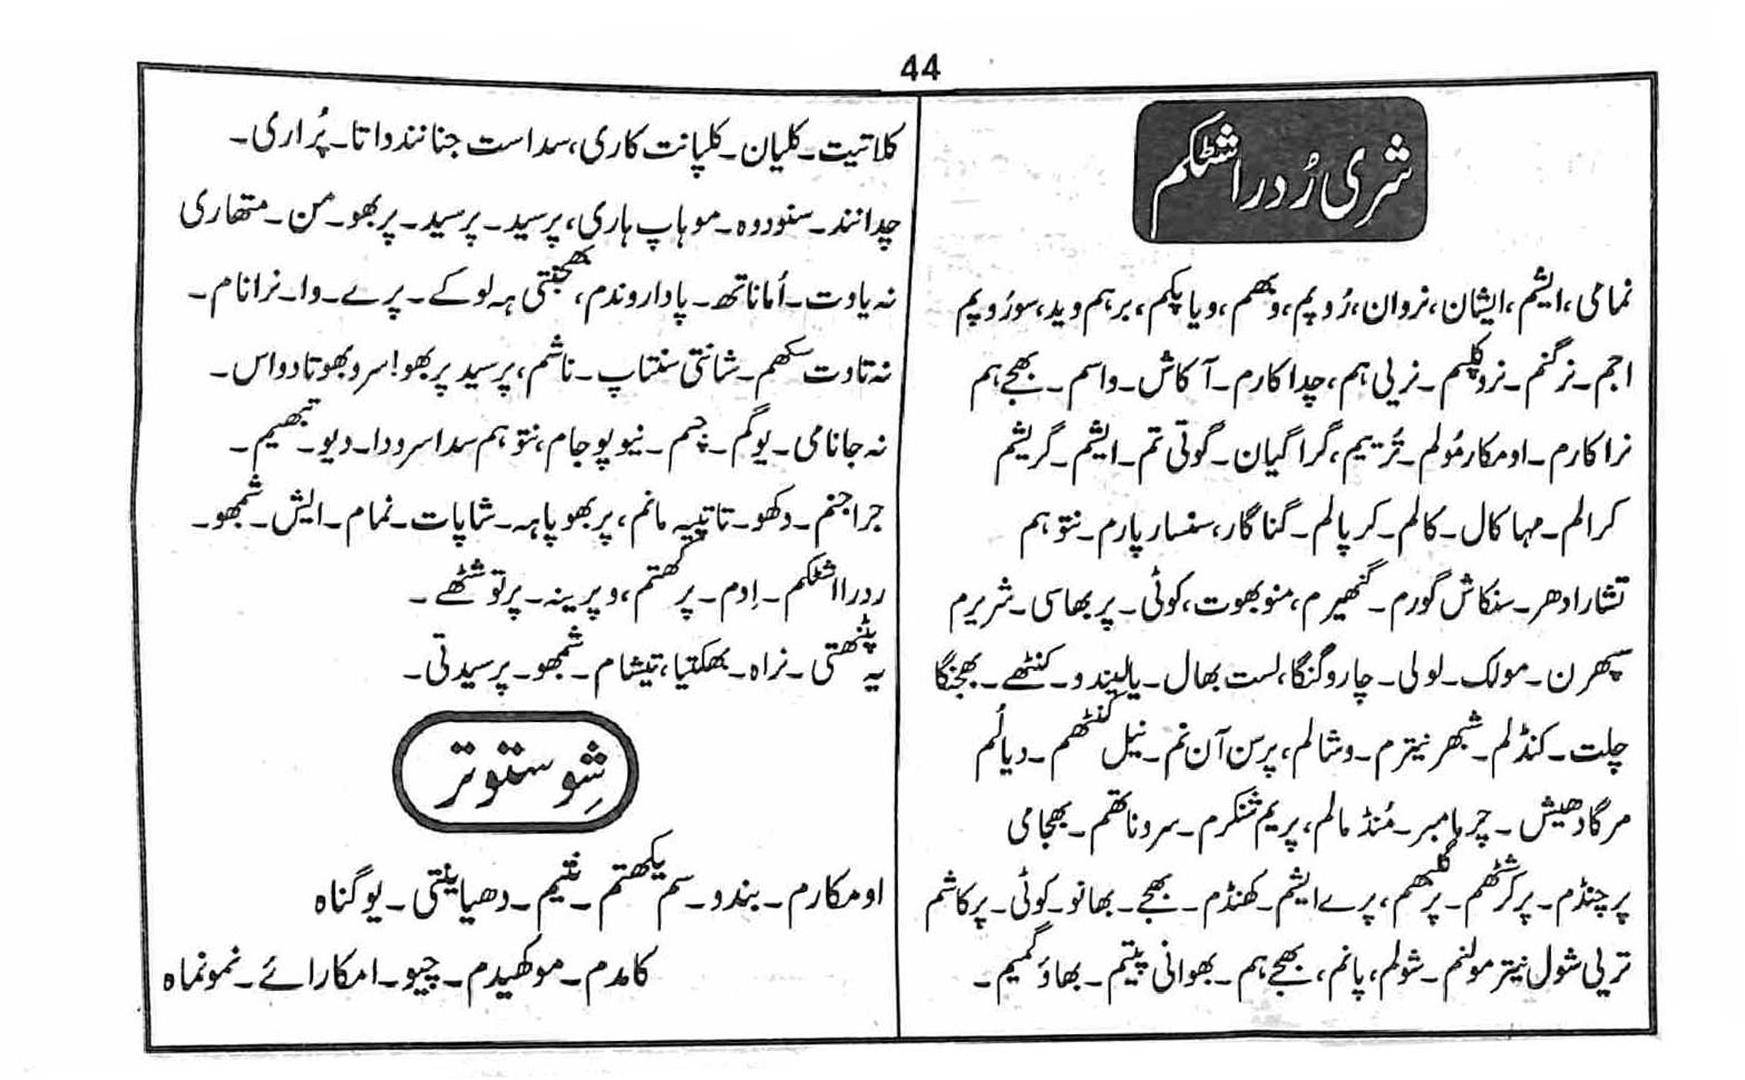 44
شری رُدراشٹکم
نمامی، ایشم، ایشان، نروان، رُوپم، وبھم، ویاپکم، برہم وید، سورُوپم
اجم۔ نرگنم۔ نروکلپم۔ نریی ہم، چدا کارم۔ آکاش۔ واسم۔ بھجے ہم
نرا کارم۔ اومکار مُولم۔ تُرییم، گرا گیان۔ گوتی تم۔ ایشم۔ گریشم
کرالم۔ مہا کال۔ کالم۔ کرپالم۔ گنا گار، سنسار پارم۔ نتو ہم
تشارادھر۔ سنکاش گورم۔ گنھیرم، منوبھوت، کوٹی۔ پربھاسی۔ شریرم
سپھرن۔ مولک۔ لولی۔ چارو گنگا، لست بھال۔ یالیندو۔ کنٹھے۔ بھجنگا
چلت۔ کنڈلم۔ شبھر نیترم۔ وشالم، پرسن آن نم۔ نیل کنٹھم۔ دیالُم
مرگادھیش۔ چرمامبر۔ مُنڈ مالم، پریم شنکرم۔ سروناتھم۔ بھجامی
پرچنڈم۔ پرکرشٹھم۔ پرگلبھم، پرے ایشم۔ کھنڈم۔ بھجے۔ بھانو۔ کوٹی۔ پرکاشم
تریی شول نیتر مولنم۔ شولم، پانم، بھجے ہم۔ بھوانی پتیم۔ بھاؤ گمیم۔
کلاتیت۔ کلیان۔ کلپانت کاری، سداست جنا نند داتا۔ پُراری۔
چدانند۔ سنودوہ۔ موہاپ ہاری، پرسید۔ پرسید۔ پربھو۔ من۔ متھاری
نہ یاوت۔ اُماناتھ۔ پاداروندم، بھجنتی ہہ لوکے۔ پرے۔ وا۔ نرانام۔
نہ تاوت سکھم۔ شانتی سنتاپ۔ ناشم، پرسید پربھو! سرو بھوتا دواس۔
نہ جانامی۔ یوگم۔ چم۔ نیو پوجام، نتو ہم سدا سرودا۔ دیو۔ تبھیم۔
جراجنم۔ دکھو۔ تاتپیہ مانم، پربھو پاہہ۔ شاپات۔ نمام۔ ایش۔ شمبھو۔
ردرااشٹکم۔ اِدم۔ پرکھتم، وپرینہ۔ پرتوشٹھے۔
یہ پٹھتی۔ نراہ۔ بھکتیا، تیشام۔ شمبھو۔ پرسیدتی۔
شِو ستوتر
اومکارم۔ بندو۔ سم یکھتم۔ نتیم۔ دھیاینتی۔ یوگناہ
کامدم۔ موکھیدم۔ چیو۔ امکارائے۔ نمونماہ